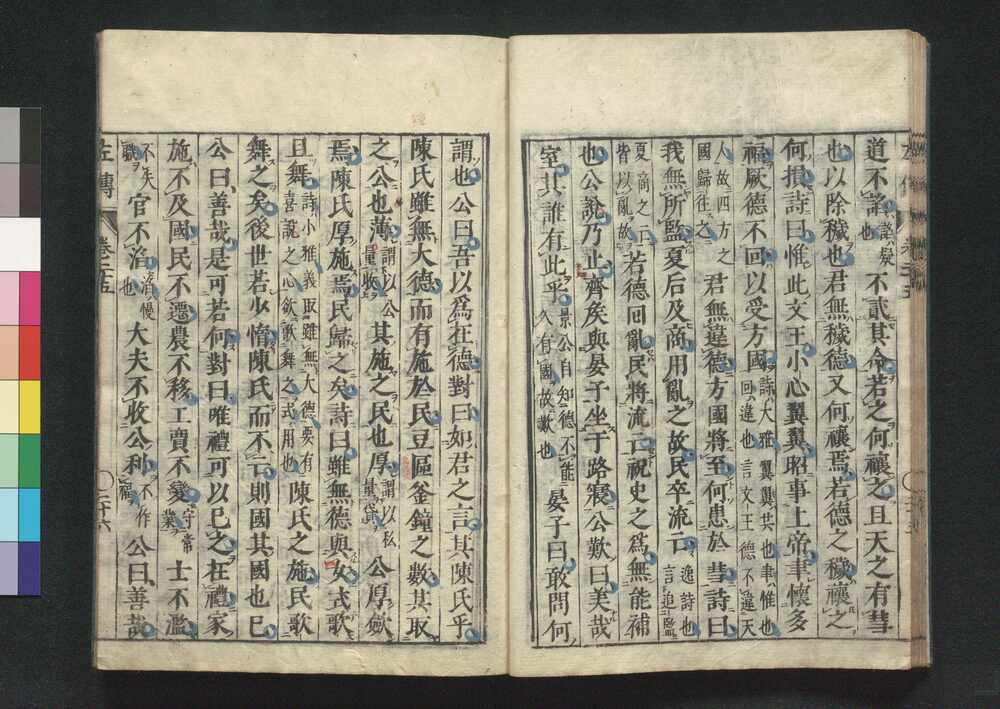 道不謟謟疑也不貳其命若之何禳之且天之有彗
也以除穢也君無穢德又何禳焉若德之穢禳之
何損詩曰惟此文王小心翼翼昭事上帝聿懷多
福厥德不回以受方國詩大雅翼翼共也聿惟也回違也言文王德不違天
人故四方之國歸往之君無違德方國將至何患於彗詩曰
我無所監夏后及商用亂之故民卒流亡逸詩也言追監
夏商之亡皆以亂故若德回亂民將流亡祝史之爲無能補
也公說乃止齊矦與晏子坐于路寢公歎曰美哉
室其誰有此乎景公自知德不能久有國故歎也晏子曰敢問何
謂也公曰吾以爲在德對曰如君之言其陳氏乎
陳氏雖無大德而有施於民豆區釜鐘之數其取
之公也薄謂以公量收其施之民也厚謂以私量貸公厚斂
焉陳氏厚施焉民歸之矣詩曰雖無德與女式歌
且舞詩小雅義取雖無大德要有喜說之心欲歌舞之式用也陳氏之施民歌
舞之矣後世若少惰陳氏而不亡則國其國也已
公曰善哉是可若何對曰唯禮可以已之在禮家
施不及國民不遷農不移工賈不變守常業士不濫
不失職官不滔滔慢也大夫不收公利不作福公曰善哉
左傳 卷二五
二十六